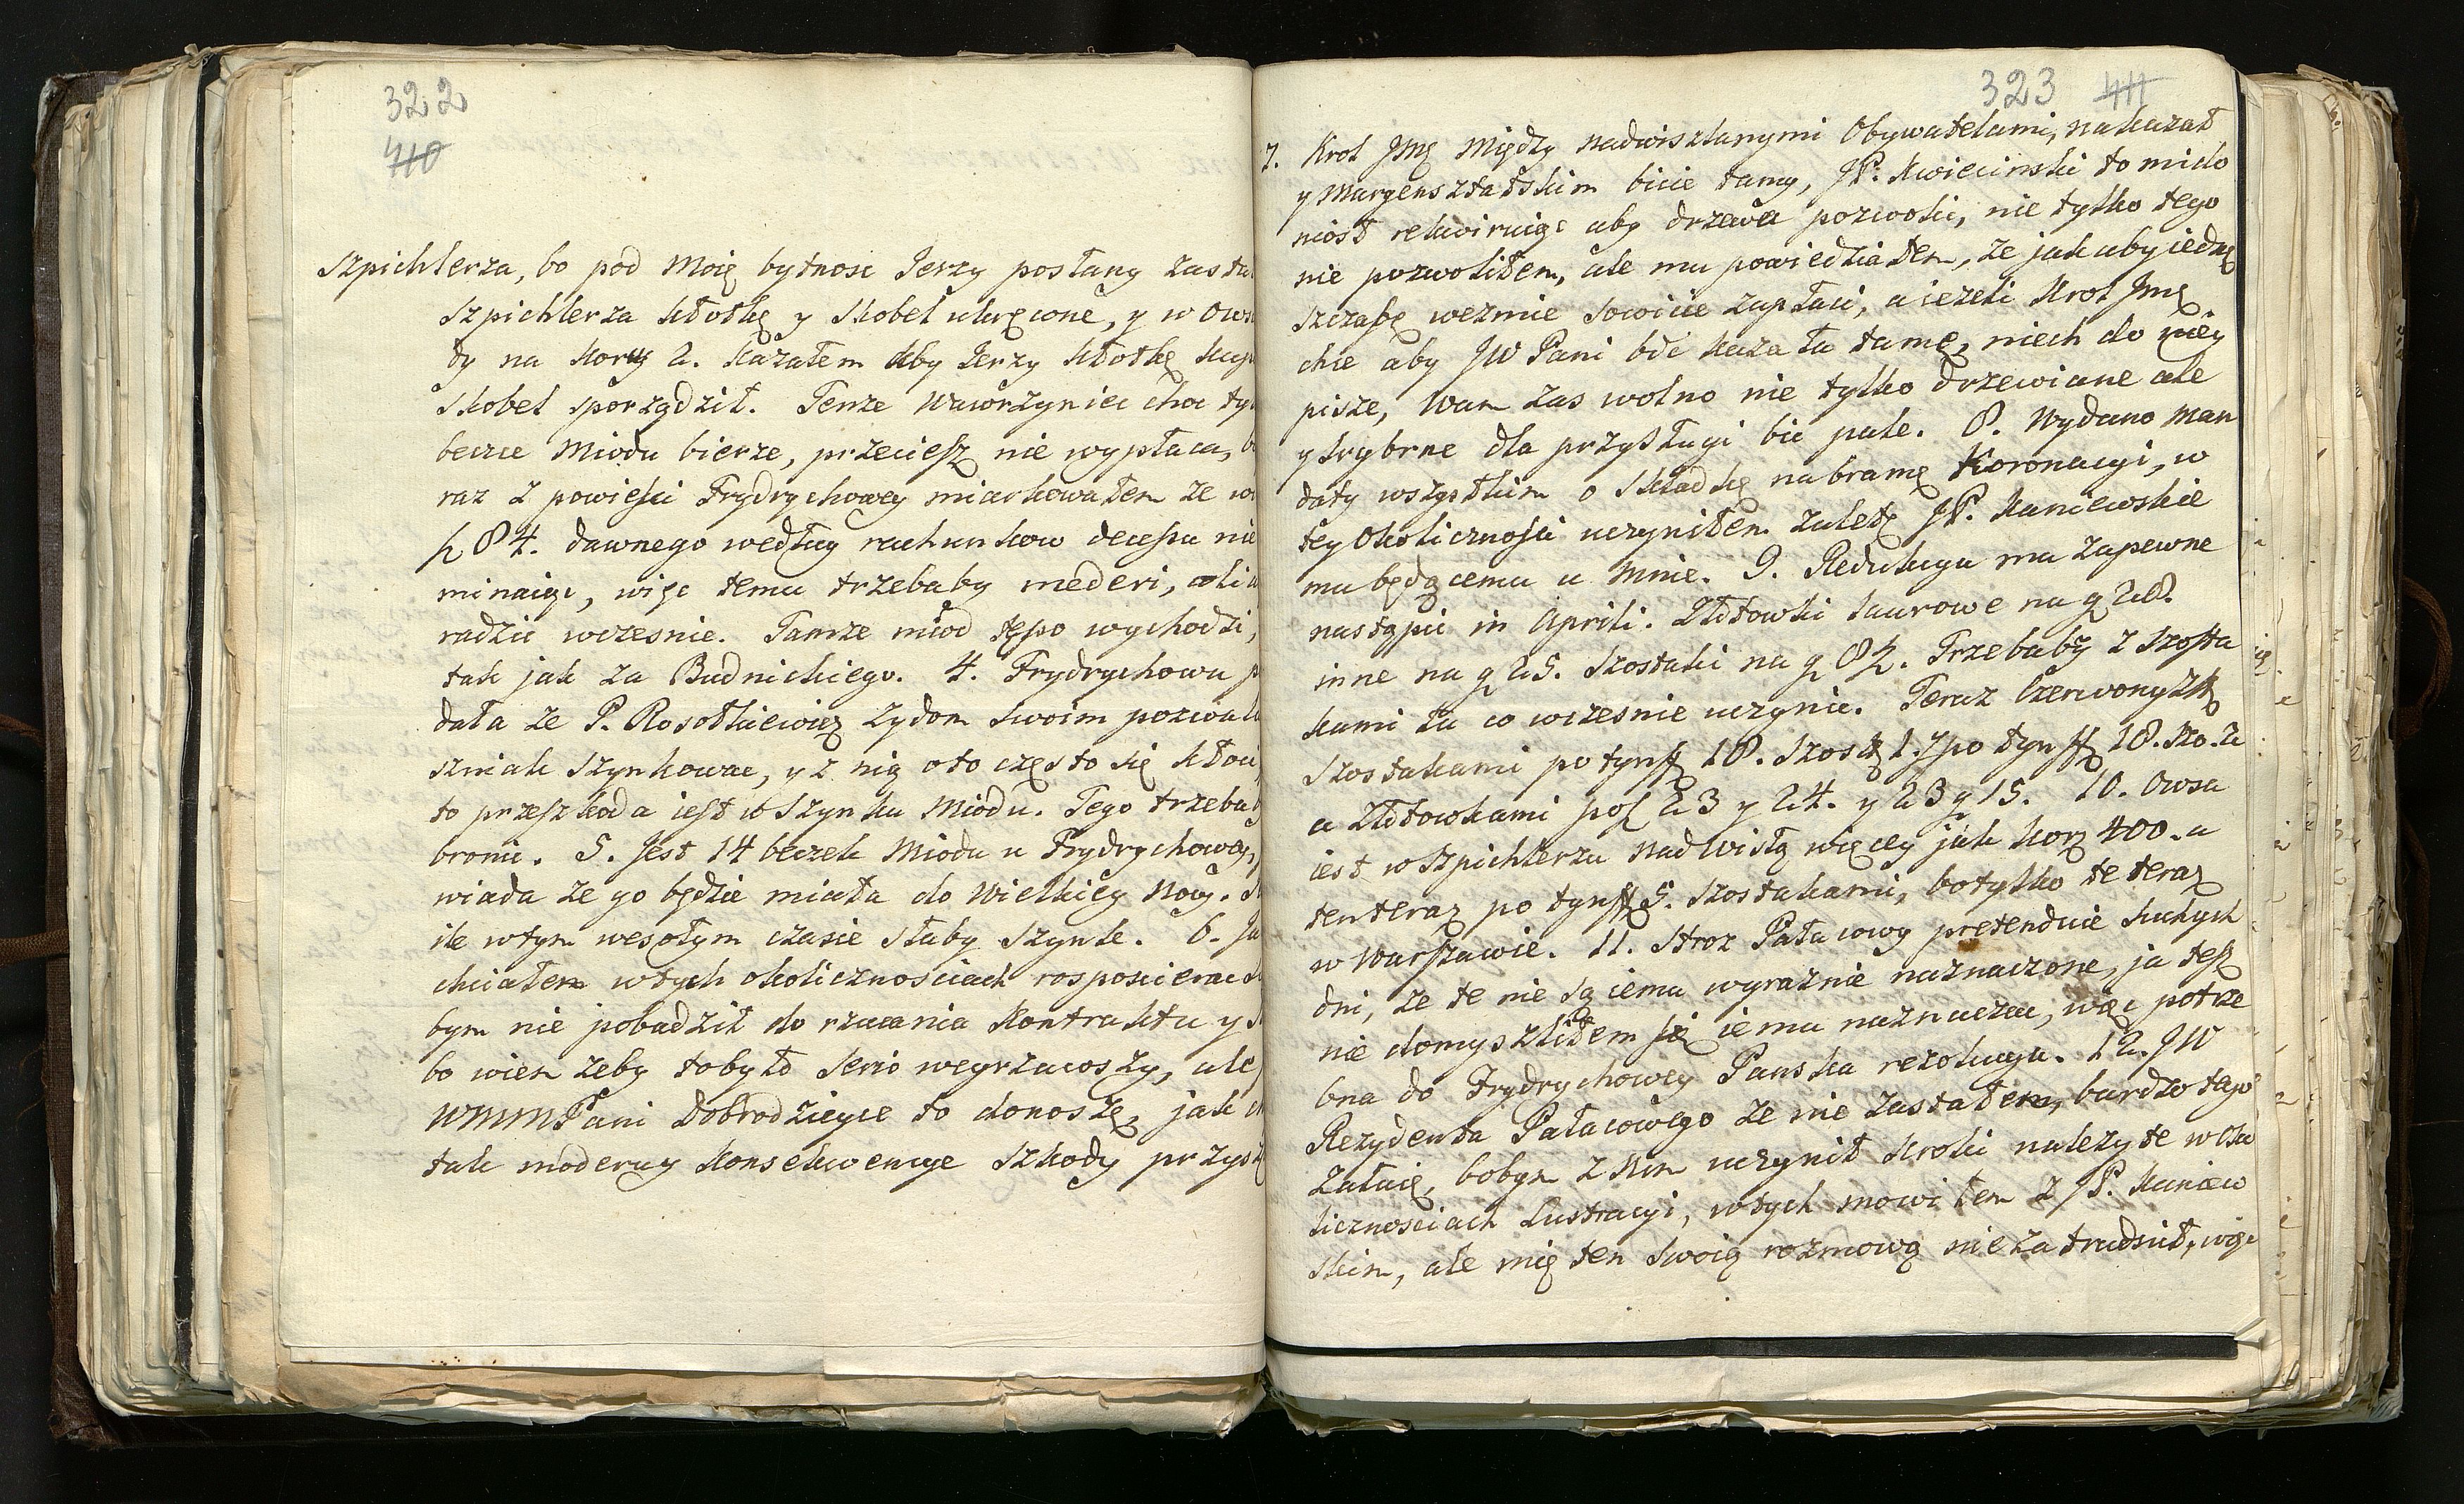 322
410
Szpichlerza, bo pod Moię bytnosc Jerzy posłany zasta
Szpichlerza kłotkę y skobel ukręcone, y w Ows
dy na kory 2. kazałem aby Jerzy kłotkę kup
skobel sporządził. Tenze Wawrzyniec choc ty
beczce Miodu bierze, przecięsz nie wypłaca, b
raz z powieści Frydrychowey miarkowałem ze w
84. dawnego według rachunkow decessu nie
minaiąc, więc temu trzebaby mederi, ali
radzic wczesnie. Tamze miod tępo wychodzi,
tak jak za Budnickiego. 4. Frydrychowa p
data ze P. Rosołkiewicz zydom swoim pozwala
szniak szynkowac, y z nią oto często się kłoci,
to przeszkoda iest w szynku Miodu. Tego trzeba
bronic. 5. Jest 14 beczek Miodu u Frydrychowey,
wiada ze go będzie miała do Wielkiey Nocy.
ile w tym wesołym czasie słaby szynk. 6. Ja
chciałem w tych okolicznościach rosposcierac
bym nie pobudził do rzucenia Kontraktu y
bo wiem zeby to było serio wegrzawszy, ale
WMMPani Dobrodzieyce to donoszę, jak
tak moderuy konsekwencye szkody przysz
323 411
7. Krol Jmę między nadwislanymi Obywatelami, nakazał
y Margensztatskim bicie tamy, JP. Kwiecinski to mi do
niosł rekwiruiąc aby drzewa pozwolic, nie tylko tego
nie pozwoliłem, ale mu powiedziałem, ze jak aby iednę
szczapę wezmie sowicie zapłaci, a iezeli Krol Jmę
chce aby JW Pani bic kazała tamę, niech do niey
pisze, Wam zas wolno nie tylko drzewiane ale
y srybrne dla przysługi bic pale. 8. Wydano man
daty wszystkim o składkę na bramę Koronacyi, w
tey okolicznosci uczyniłem zaletę JP. Kaniewskie
mu będącemu u mnie. 9. Redukcya ma zapewne
nastąpic in Aprili. Złotowki saurowe na g 28.
inne na g 25. szostaki na g 8½. Trzebaby z szosta
kami za co wczesnie uczynic. Teraz Czerwony zł
szostakami po tynff 18. szost 1. y po tynff 18. szo. 2
a Złotowkami po 23 y 24. y 23 g 15. 10. Owsa
iest w szpichlerzu nad Wisłą więcey jak korz 400. a
ten teraz po tynff 5. szostakami, bo tylko te teraz
w Warszawie. 11. Stroz Pałacowy pretenduie suchych
dni, ze te nie są iemu wyraznie naznaczone, ja tesz
nie domyszliłem się iemu naznaczac, więc potrze
bna do Frydrychowey Panska rezolucya. 12. JW
Rezydenta Pałacowego ze nie zastałem, bardzo tego
załuię, bobym z Nim uczynił kroki nalezyte w oko
licznosciach Lustracyi, w tych mowiłem z JP. Kaniew
skim, ale mię ten swoią rozmową nie zatrudnił, więc